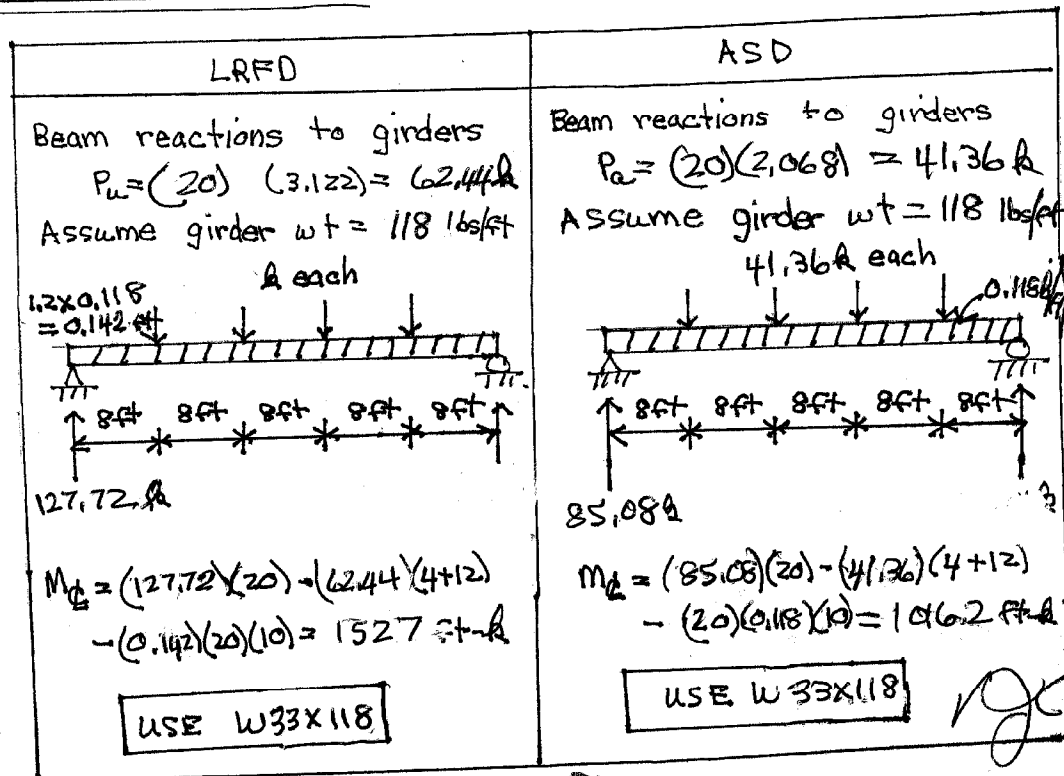 LRFD
Beam reactions to girders
Pu = (20) (3.122) = 62.44 k
Assume girder wt = 118 lbs/ft
k each
1.2x0.118
= 0.142 ft
8ft 8ft 8ft 8ft 8ft
127.72 k
M℄ = (127.72)(20) - (62.44)(4+12)
- (0.142)(20)(10) = 1527 ft-k
USE W33X118
ASD
Beam reactions to girders
Pa = (20)(2.068) = 41.36 k
Assume girder wt = 118 lbs/ft
41.36k each
0.118k/
8ft 8ft 8ft 8ft 8ft
85.08k
M℄ = (85.08)(20) - (41.36)(4+12)
- (20)(0.118)(10) = 1016.2 ft-k
USE W 33X118